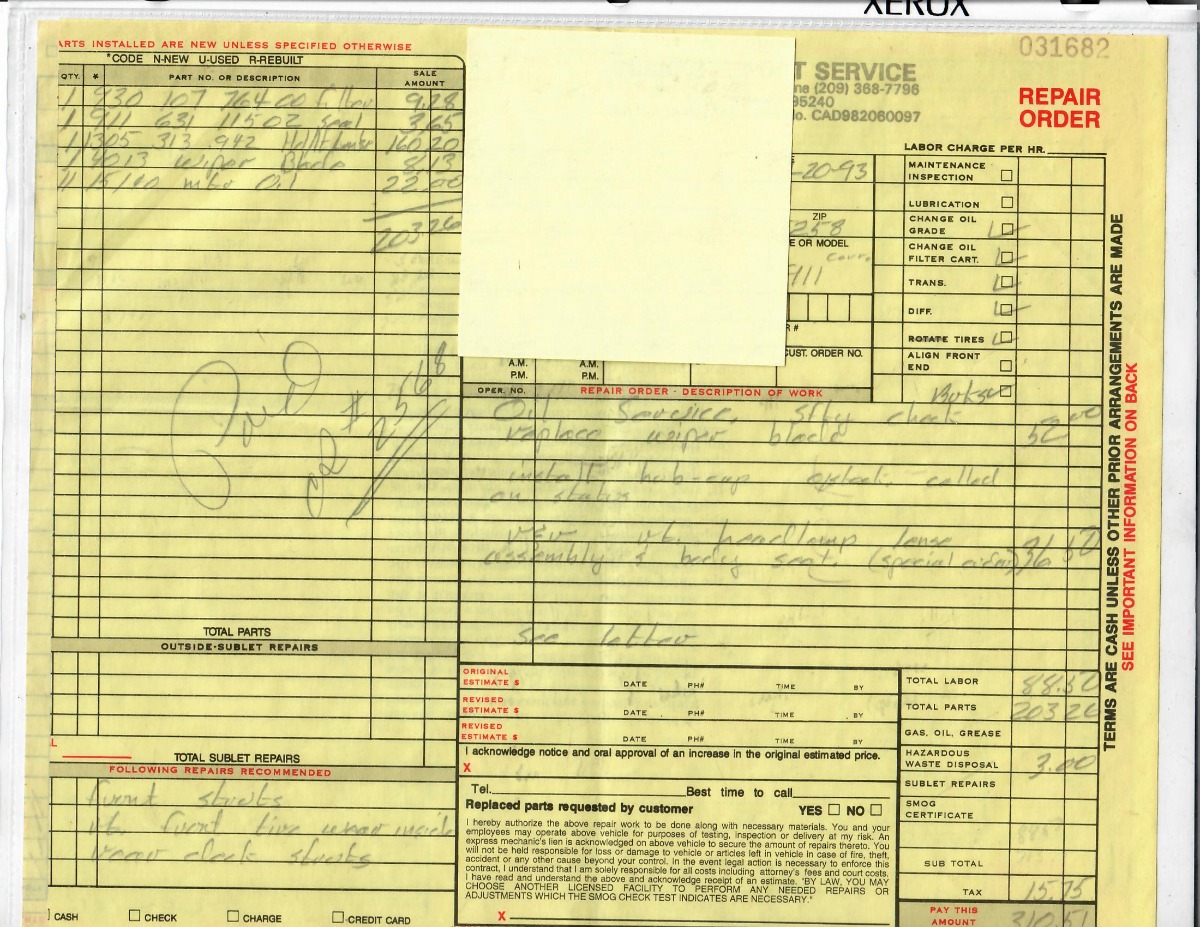 XEROX
031682
ARTS INSTALLED ARE NEW UNLESS SPECIFIED OTHERWISE
*CODE N-NEW U-USED R-REBUILT
QTY. * PART NO. OR DESCRIPTION SALE AMOUNT
1 930 107 764 00 Filter 9.28
1 911 631 115 02 Seal 3.65
1 1305 313 942 160.20
1 4013 Wiper Blade 8.13
11 15/40 Oil 22.00
203.26
Paid
$
TOTAL PARTS
OUTSIDE-SUBLET REPAIRS
L
TOTAL SUBLET REPAIRS
FOLLOWING REPAIRS RECOMMENDED
front struts
front tire wear inside
rear deck struts
CASH CHECK CHARGE CREDIT CARD
T SERVICE
ne (209) 368-7796
95240
lo. CAD982060097
REPAIR
ORDER
LABOR CHARGE PER HR.
-20-93
ZIP
258
E OR MODEL
911
R #
CUST. ORDER NO.
A.M. A.M.
P.M. P.M.
MAINTENANCE
INSPECTION
LUBRICATION
CHANGE OIL
GRADE
CHANGE OIL
FILTER CART.
TRANS.
DIFF.
ROTATE TIRES
ALIGN FRONT
END
OPER. NO. REPAIR ORDER - DESCRIPTION OF WORK
Oil Service, sfty check 52.00
replace wiper blade
install hub-cap called
on status
headlamp lense 36.50
assembly & body seal. (special order)
see letter
ORIGINAL
ESTIMATE $ DATE PH# TIME BY
REVISED
ESTIMATE $ DATE PH# TIME BY
REVISED
ESTIMATE $ DATE PH# TIME BY
I acknowledge notice and oral approval of an increase in the original estimated price.
X
Tel. Best time to call
Replaced parts requested by customer YES NO
I hereby authorize the above repair work to be done along with necessary materials. You and your
employees may operate above vehicle for purposes of testing, inspection or delivery at my risk. An
express mechanic's lien is acknowledged on above vehicle to secure the amount of repairs thereto. You
will not be held responsible for loss or damage to vehicle or articles left in vehicle in case of fire, theft,
accident or any other cause beyond your control. In the event legal action is necessary to enforce this
contract, I understand that I am solely responsible for all costs including attorney's fees and court costs.
I have read and understand the above and acknowledge receipt of an estimate. "BY LAW, YOU MAY
CHOOSE ANOTHER LICENSED FACILITY TO PERFORM ANY NEEDED REPAIRS OR
ADJUSTMENTS WHICH THE SMOG CHECK TEST INDICATES ARE NECESSARY."
X
TOTAL LABOR 88.50
TOTAL PARTS 203 26
GAS, OIL, GREASE
HAZARDOUS
WASTE DISPOSAL 3.00
SUBLET REPAIRS
SMOG
CERTIFICATE
SUB TOTAL
TAX 15.75
PAY THIS
AMOUNT 310.51
TERMS ARE CASH UNLESS OTHER PRIOR ARRANGEMENTS ARE MADE
SEE IMPORTANT INFORMATION ON BACK